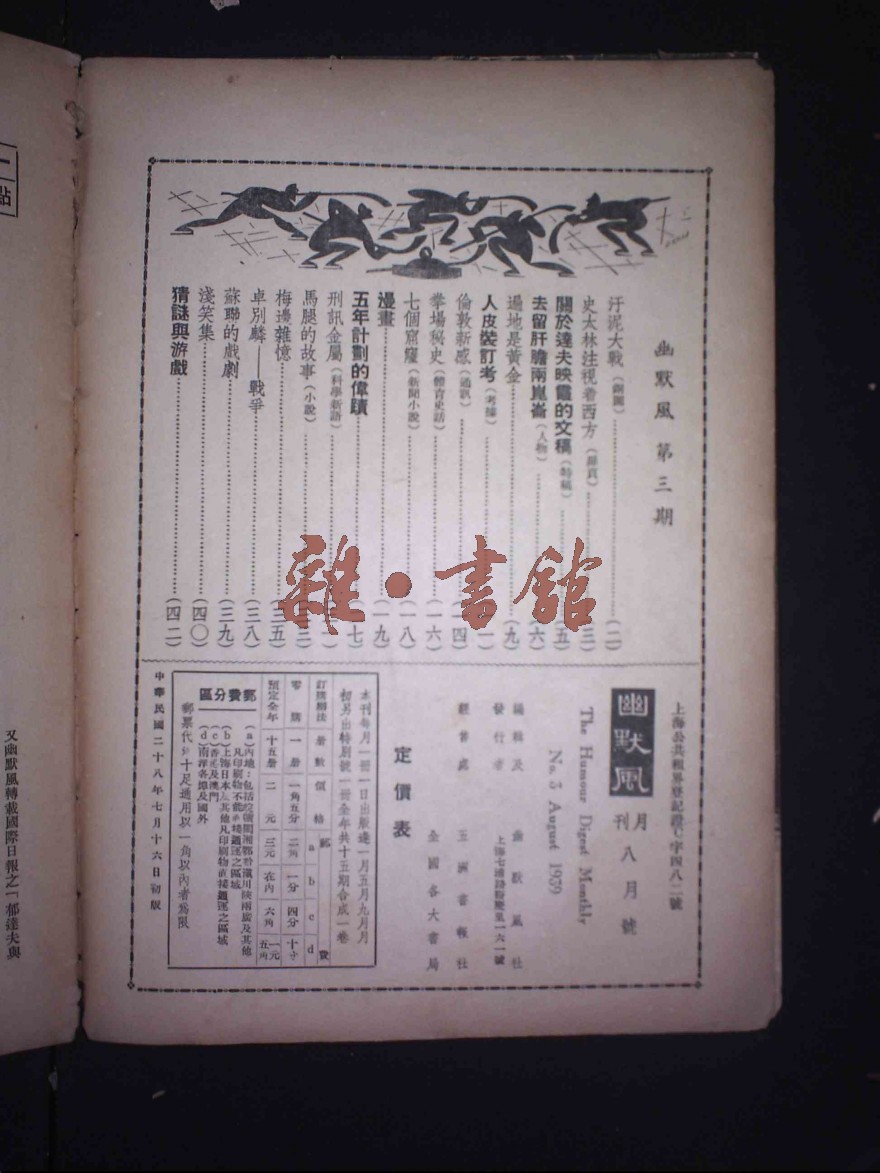 幽默風 第三期
汙泥大戰(銅圖)(二)
史太林注視着西方(扉頁)(三)
關於達夫映霞的文稿(特稿)(五)
去留肝膽兩崑崙(人物)(六)
遍地是黃金(九)
人皮裝訂考(考據)
倫敦新感(通訊)(一四)
拳場秘史(體育史話)(一六)
七個窟窿(新聞小說)(一八)
漫畫(一九)
五年計劃的偉蹟
刑訊金屬(科學新語)
馬腿的故事(小說)
梅邊雜憶
卓別麟——戰爭(三八)
蘇聯的戲劇(三九)
淺笑集(四〇)
猜謎與游戲(四二)
雜·書館
上海公共租界登記證C字四八二號
幽默風
月刊 八月號
The Humour Digest Monthly
No. 3 August 1939
編輯及發行者 幽默風社
經售處 五洲書報社
全國各大書局
定價表
本刊每月一冊一日出版逢一月五月九月
另出特別號一冊全年共十五期合成一卷
訂購辦法 冊數 價格 郵費 a b c d
零購 一冊 一角五分 一分 四分
預定全年 十五冊 二元 三元 在內 六角 一元五角
郵費分區
(b)上海日本及其他凡印刷物直接遞運之區域
(c)香港及澳門
(d)南洋各埠及國外
郵票代 十足通用以一角以內者為限
中華民國二十八年七月十六日初版
一
點
又幽默風轉載國際日報之「郁達夫與